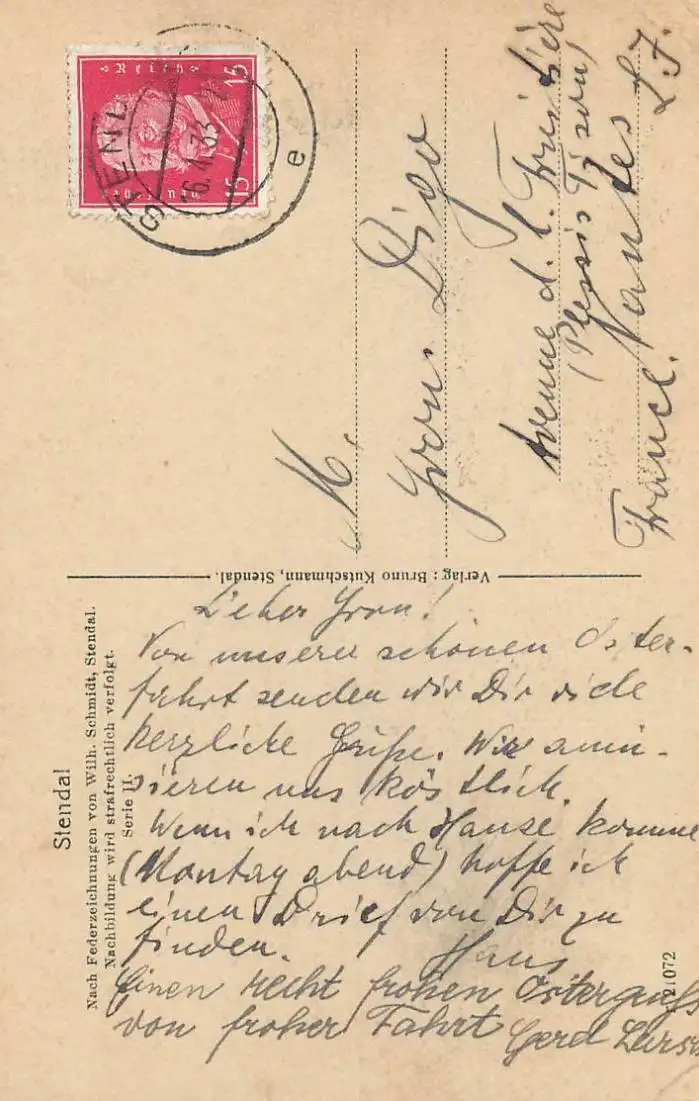 Reich
15 15
Deutsches
STENDAL
16.4.33
e
M.
Yvon Digo
Avenue d. l. Freitière
(Plessis Tison)
Nantes L. I.
France.
Verlag: Bruno Kutschmann, Stendal.
Stendal
Nach Federzeichnungen von Wilh. Schmidt, Stendal.
Nachbildung wird strafrechtlich verfolgt.
Serie II.
Lieber Yvon!
Von unserer schönen Oster-
fahrt senden wir Dir viele
herzliche Grüße. Wir amü-
sieren uns köstlich.
Wenn ich nach Hause komme
(Montag abend) hoffe ich
einen Brief von Dir zu
finden. Hans
Einen recht frohen Ostergruß
von froher Fahrt Gerd
21072